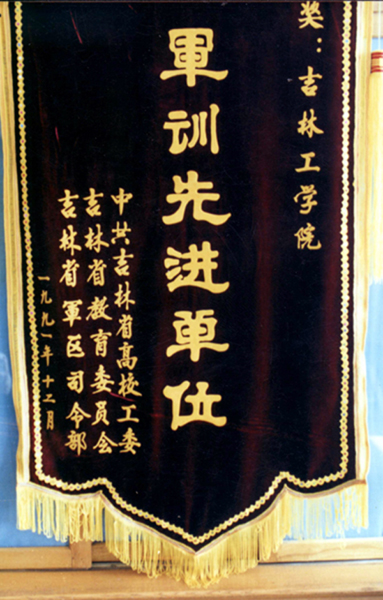 奖：吉林工学院
軍训先进单位
中共吉林省高校工委
吉林省教育委员会
吉林省軍区司令部
一九九一年十二月